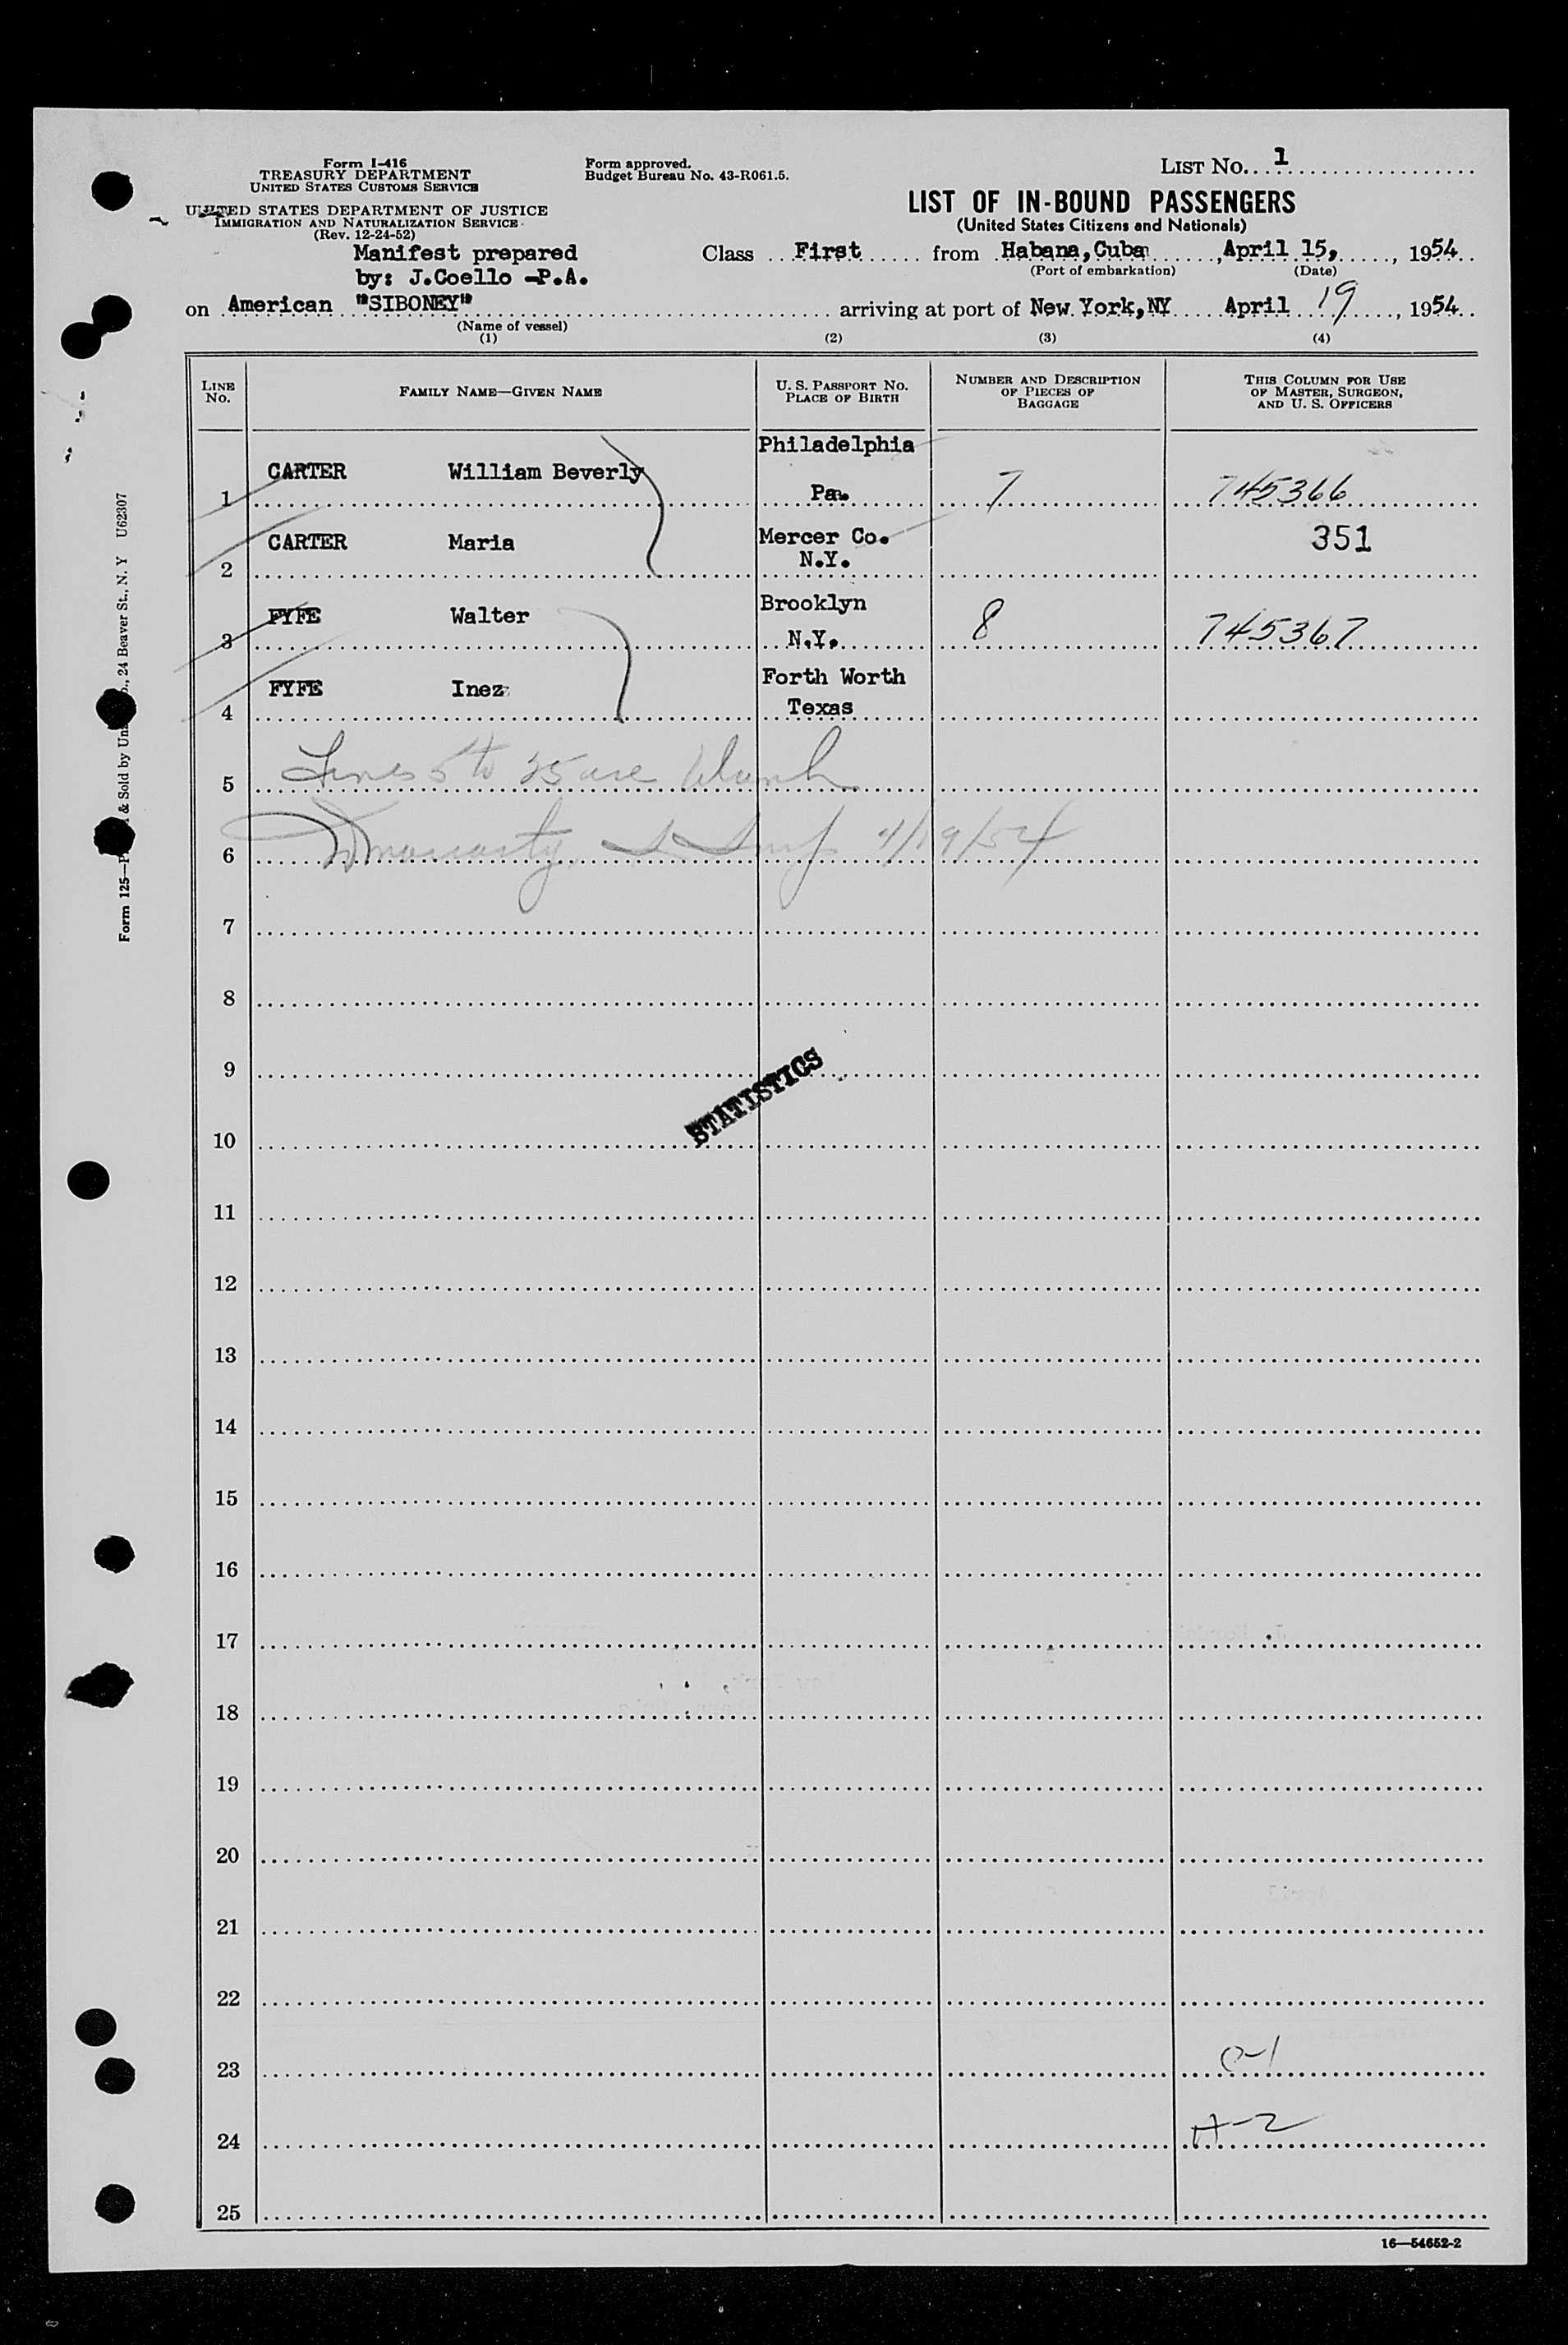 LIST No. 1
Form I-416
TREASURY DEPARTMENT
UNITED STATES CUSTOMS SERVICE
Form approved.
Budget Bureau No. 43-R061.5.
UNITED STATES DEPARTMENT OF JUSTICE
IMMIGRATION AND NATURALIZATION SERVICE
(Rev. 12-24-52)
LIST OF IN-BOUND PASSENGERS
(United States Citizens and Nationals)
Manifest prepared
by: J.Coello -P.A.
Class First from Habana, Cuba, April 15, 1954
(Port of embarkation) (Date)
on American "SIBONEY" arriving at port of New York, NY April 19, 1954
(Name of vessel)
(1) (2) (3) (4)
LINE No. FAMILY NAME—GIVEN NAME U. S. PASSPORT No. PLACE OF BIRTH NUMBER AND DESCRIPTION OF PIECES OF BAGGAGE THIS COLUMN FOR USE OF MASTER, SURGEON, AND U. S. OFFICERS
1 CARTER William Beverly Philadelphia Pa. 7 745366
2 CARTER Maria Mercer Co. N.Y. 351
3 FYFE Walter Brooklyn N.Y. 8 745367
4 FYFE Inez Forth Worth Texas
5 Lines 5 to 25 are blank
6 4/19/54
7
8
9
STATISTICS
10
11
12
13
14
15
16
17
18
19
20
21
22
23 C-1
24 A-2
25
16—54652-2
Form 125— & Sold by Un , 24 Beaver St., N. Y U62307